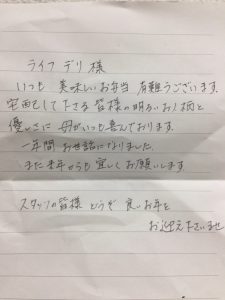 ライフデリ様
いつも 美味しいお弁当 有難うございます。
宅配して下さる皆様の明るいお人柄と
優しさに 母がいつも喜んでおります。
一年間 お世話になりました。
また来年からも宜しくお願いします。
スタッフの皆様 どうぞ 良いお年を
お迎え下さいませ